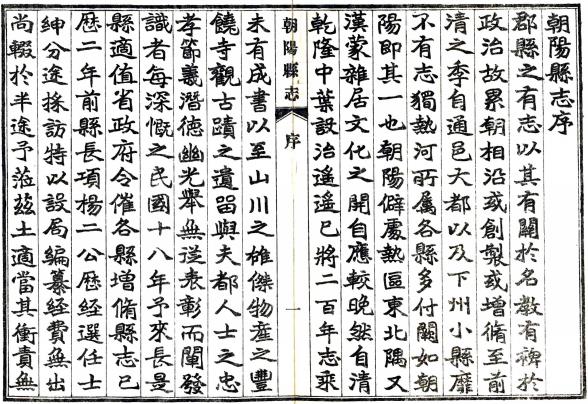 朝陽縣志序
郡縣之有志以其有關於名教有裨於
政治故累朝相沿或創製或增脩至前
清之季自通邑大都以及下州小縣靡
不有志獨熱河所屬各縣多付闕如朝
陽即其一也朝陽僻處熱區東北隅又
漢蒙雜居文化之開自應較晚然自清
乾隆中葉設治遙遙已將二百年志乘
朝陽縣志 序 一
未有成書以至山川之雄傑物產之豐
饒寺觀古蹟之遺留與夫都人士之忠
孝節義潛德幽光舉無從表彰而闡發
識者每深慨之民國十八年予來長是
縣適值省政府令催各縣增脩縣志已
歷二年前縣長項楊二公歷經選任士
紳分途採訪特以設局編纂經費無出
尚輟於半途予蒞茲土適當其衝責無